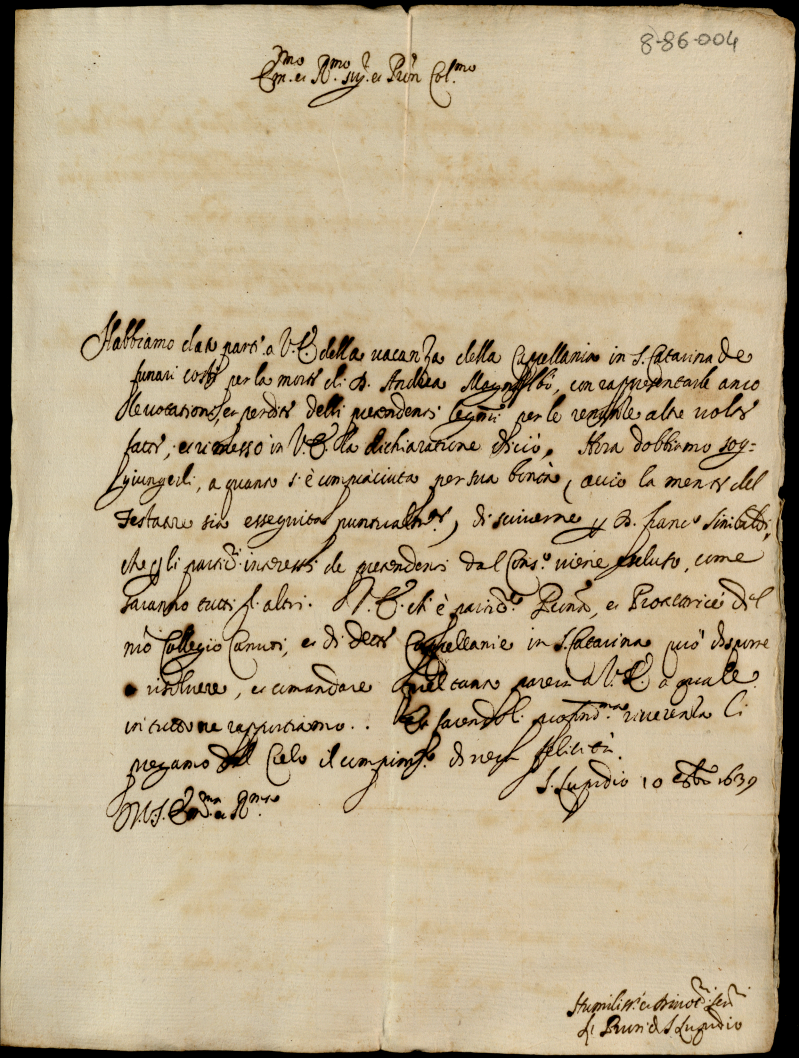 8-86-004
Em.mo et R.mo Sig.r et Pron Col.mo
Habbiamo dato parte a V. E. della vacanza della Cappellania in S. Catarina de
funari costì per la morte di D. Andrea con rapresentarle anco
le votationi, et perdite delli pretendenti per le altre volte
fatte, et rimesso in V. E. la dichiaratione di ciò. Hora dobbiamo sog=
giungerli, a quanto s'è compiaciuta per sua bontà, acciò la mente del
Testatore sia esseguita di scriverne D. Franc.o Sinibaldi,
che li partic.i interessi de pretendenti dal Cons.o viene escluso, come
saranno tutti gl'altri. V. E. ch'è Prona, et Protettrice del
nro Collegio et di dette Cappellanie in S. Catarina può disporre
risolvere, et comandare quel tanto parerà a V. E. a quale
in tutto ne rapportiamo. Et facendoli riverenza li
pregamo dal Cielo il compim.to di felicità.
S. Lupidio 10 1639
D. V. S. Em.ma et R.ma
Humiliss.i et Devot.i Ser.i
Li Priori di S. Lupidio